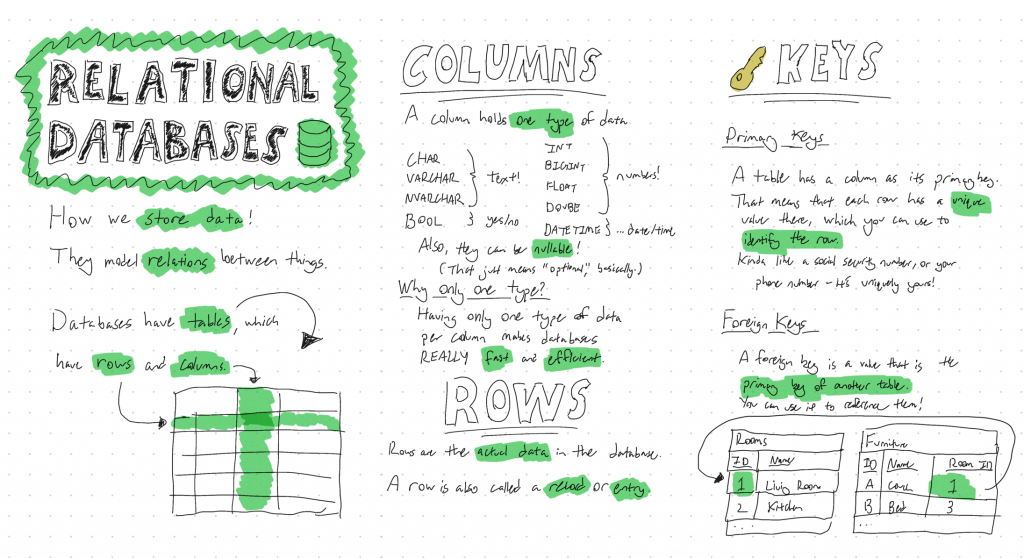 RELATIONAL
DATABASES
How we store data!
They model relations between things.
Databases have tables, which
have rows and columns.
COLUMNS
A column holds one type of data.
CHAR
VARCHAR
NVARCHAR
} Text!
BOOL } yes/no
INT
BIGINT
FLOAT
DOUBE
} numbers!
DATETIME } ...date/time
Also, they can be nullable!
(That just means "optional," basically.)
Why only one type?
Having only one type of data
per column makes databases
REALLY fast and efficient.
ROWS
Rows are the actual data in the database.
A row is also called a or entry
KEYS
Primary Keys
A table has a column as its primary key.
That means that each row has a unique
value there, which you can use to
identify the row.
Kinda like a social security number, or your
phone number - it's uniquely yours!
Foreign Keys
A foreign key is a value that is the
primary key of another table.
You can use it to reference them!
Rooms
ID Name
1 Living Room
2 Kitchen
...
Furniture
ID Name Room ID
A Couch 1
B Bed 3
...